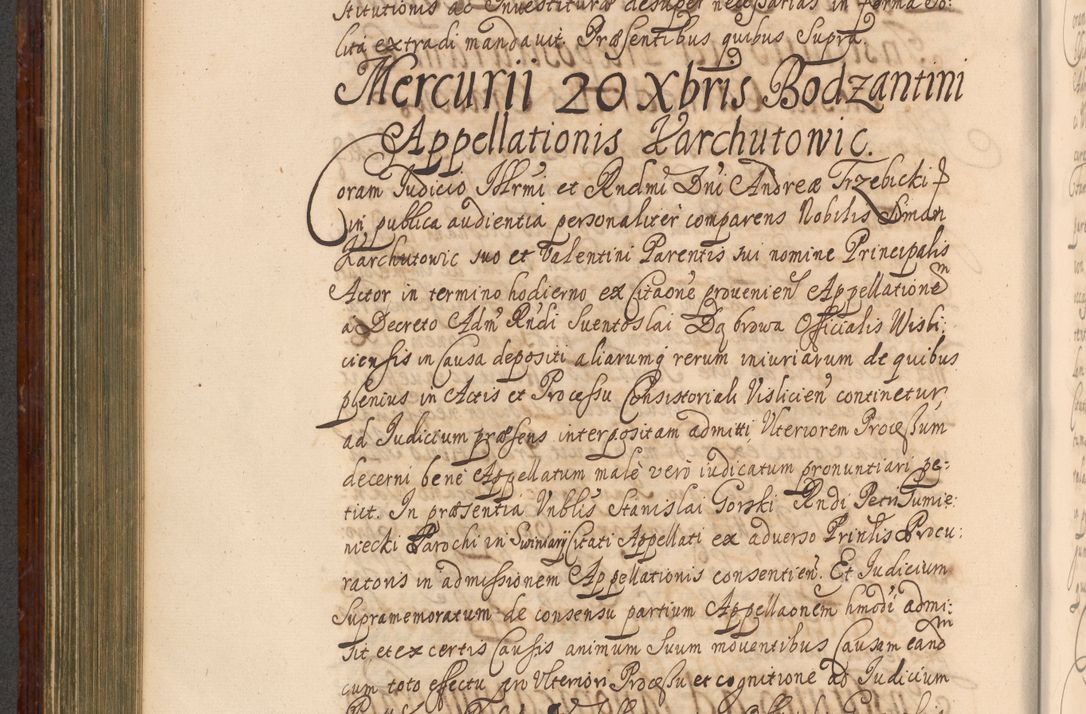 stitutionis ac Investituræ desuper necessarias in forma so:
lita extradi mandavit. Præsentibus quibus Supra.
Mercurii 20 Xbris Bodzantini
Appellationis Karchutowic.
Coram Judicio Illrmi et Rndmi Dni Andreæ Trzebicki
in publica audientia personaliter comparens Nobilis Siman
Karchutowic suo et Valentini Parentis sui nomine Principalis
Actor in termino hodierno ex Citaone provenien Appellationem
a Decreto Adm Rndi Suentoslai Dąbrowa Officialis Wisli:
ciensis in Causa depositi aliarumq rerum iniuriarum de quibus
plenius in Actis et Processu Consistoriali Vislicien continetur
ad Judicium præsens interpositam admitti, Ulteriorem Processum
decerni bene Appellatum male vero iudicatum pronuntiari pe:
tiit. In præsentia Vnblis Stanislai Gorski Rndi Petri Jumie:
niecki Parochi in Swiniary Citati Appellati ex adverso Prinlis Procu:
ratoris in admissionem Appellationis consentien. Et Judicium
Supramemoratum de consensu partium Appellaonem hmodi admi:
sit et ex certis Causis animum suum moventibus Causam eandm
cum toto effectu pro Ulteriori Processu et cognitione ad Judicium